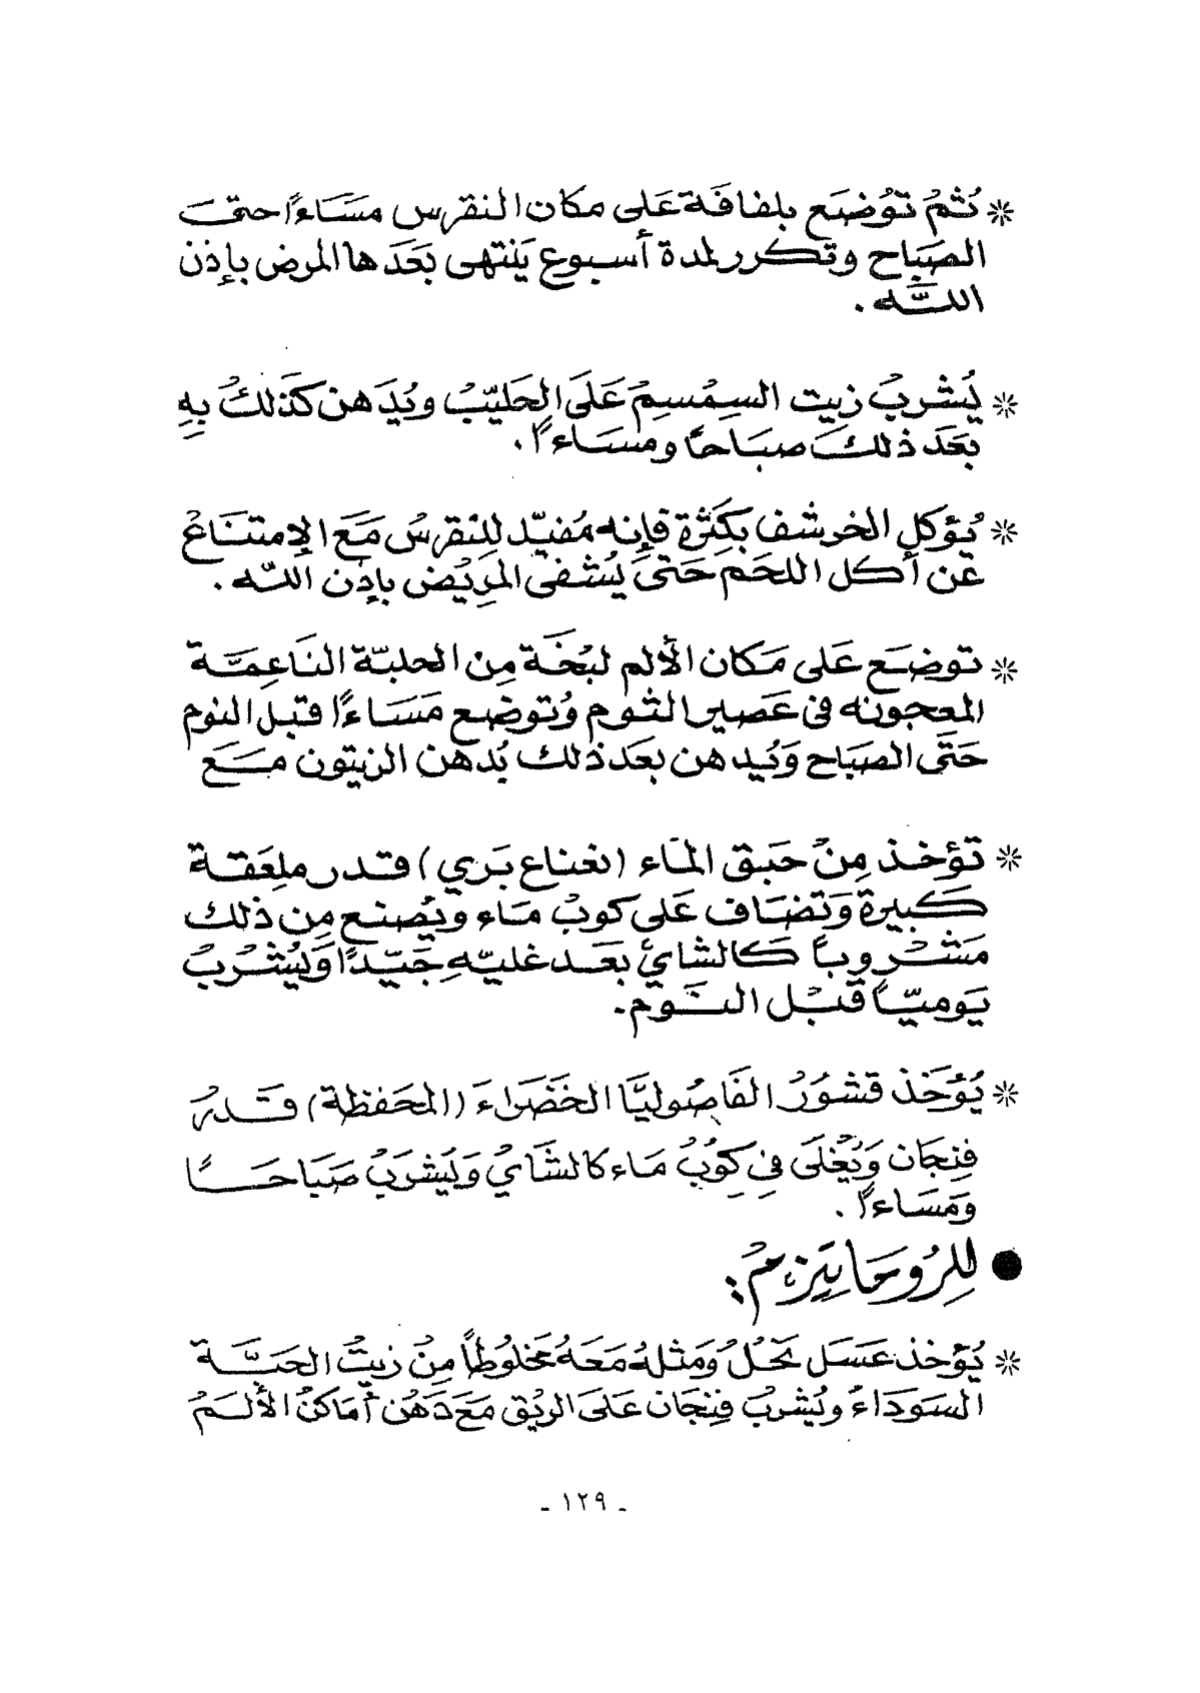 * ثُمّ توُضَع بلفافَة عَلى مكان النقرس مسَاءً حتىَ
الصَباح وتكرر لمدة أسبوع يَنتهى بَعَدَها المرض بإذن
اللّه .
* يُشربُ زيت السِمْسِمُ عَلَى الحَليّبُ ويُدَهن كذَلكُ بِهِ
بَعَدَ ذلكَ صبَاحاً ومسَاءاً .
* يُؤكل الخرشف بكَثرة فإنه مُفيّد للِنقرسُ مَعَ الإمتنَاعُ
عَن أكل اللحَم حَتىَ يُشفى المرِيُض بإذن اللّه .
* توضَع عَلى مَكان الألم لبُخَة مِن الحلبّة النَاعِمَة
المعجونه فى عَصير الثوم وُتوضِع مَسَاءًا قبل النوم
حَتَى الصَبَاح وَيُدهن بعَد ذلك بُدهن الزيتون مَع
* تؤخذ مِنْ حَبق الماء (نعناع بَري) قدر ملِعَقة
كَبيرة وَتضَاف عَلى كوبُ مَاء ويُصنع مِن ذلك
مَشْروباً كالشايُ بعَد غليّهِ جَيّدًا وَيُشْربُ
يَوميّاً قبْل النَوم.
* يُؤخَذ قشوُرُ الفَاصُوليَّا الخَضَراءَ (المحَفظة) قَدرُ
فِنجَان وَيُغْلَى فى كوُبُ مَاء كالشَايُ وَيَشرَبُ صَبَاحًا
وَمَسَاءاً .
● لِلرُومَاتِيَزمُ :
* يُؤخذ عَسَل نحَلُ وَمَثلهُ مَعَهُ مخَلوُطاً مِنُ زيتُ الحَبَّة
السَوَدَاءُ ويُشربُ فِنِجَان عَلىَ الريُق مَعَ دَهُن أمَاكنُ الألَمُ
- ١٢٩ -